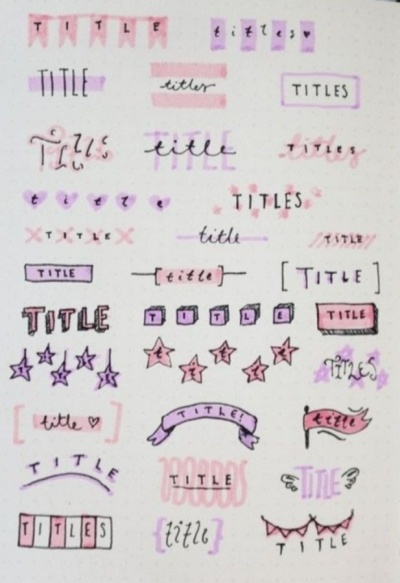 TITLE titles
TITLE titles TITLES
TITLES TITLE title TITLES titles
title TITLES
TITLE title TITLE
TITLE title TITLE
TITLE TITLE TITLE
title title TITLES
title TITLE! title
TITLE TITLE TITLE
TITLES title TITLE